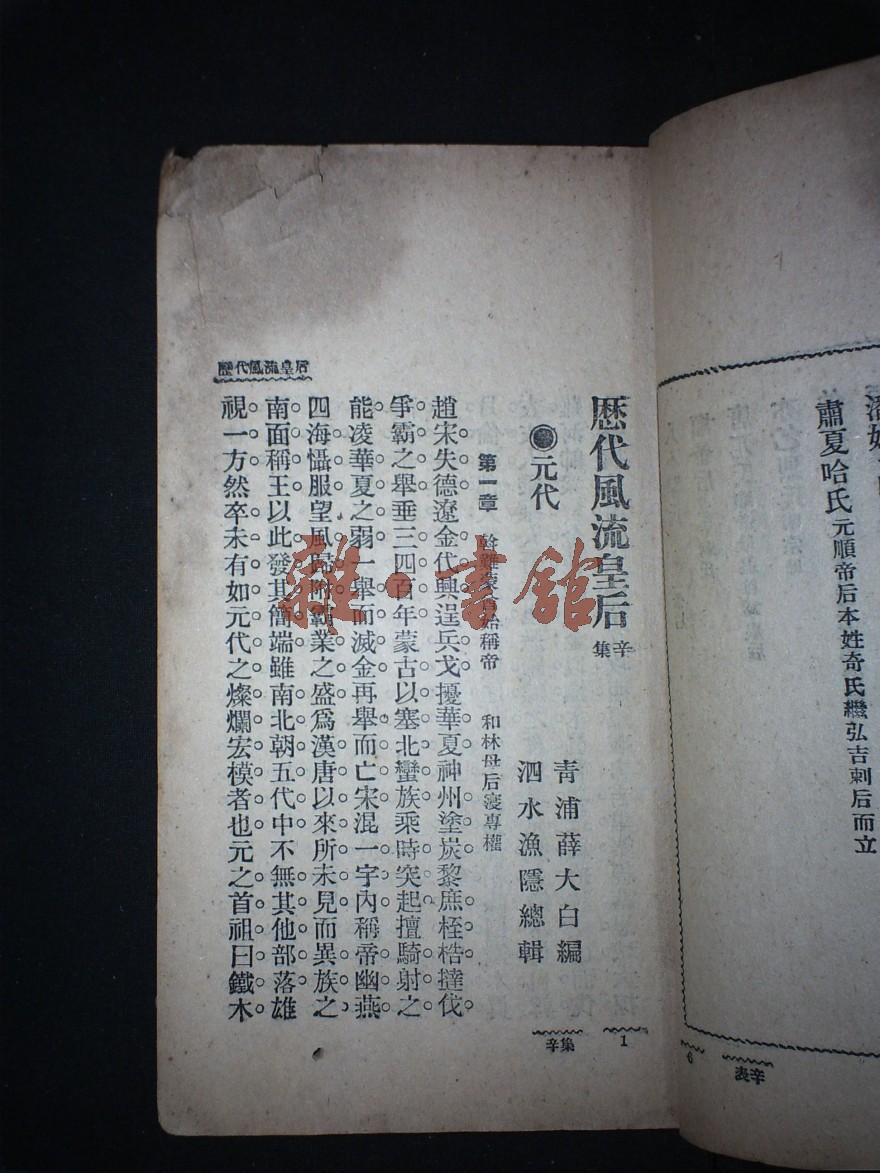 肅夏哈氏元順帝后本姓奇氏繼弘吉剌后而立
辛表
6
歷代風流皇后 辛集
青浦薛大白編
泗水漁隱總輯
元代
第一章 稱帝 和林母后寖專權
趙宋失德遼金代興逞兵戈擾華夏神州塗炭黎庶桎梏撻伐
爭霸之舉垂三四百年蒙古以塞北蠻族乘時突起擅騎射之
能凌華夏之弱一舉而滅金再舉而亡宋混一宇內稱帝幽燕
四海懾服望風歸附霸業之盛爲漢唐以來所未見而異族之
南面稱王以此發其簡端雖南北朝五代中不無其他部落雄
視一方然卒未有如元代之燦爛宏模者也元之首祖曰鐵木
歷代風流皇后
辛集
1
雜·書館